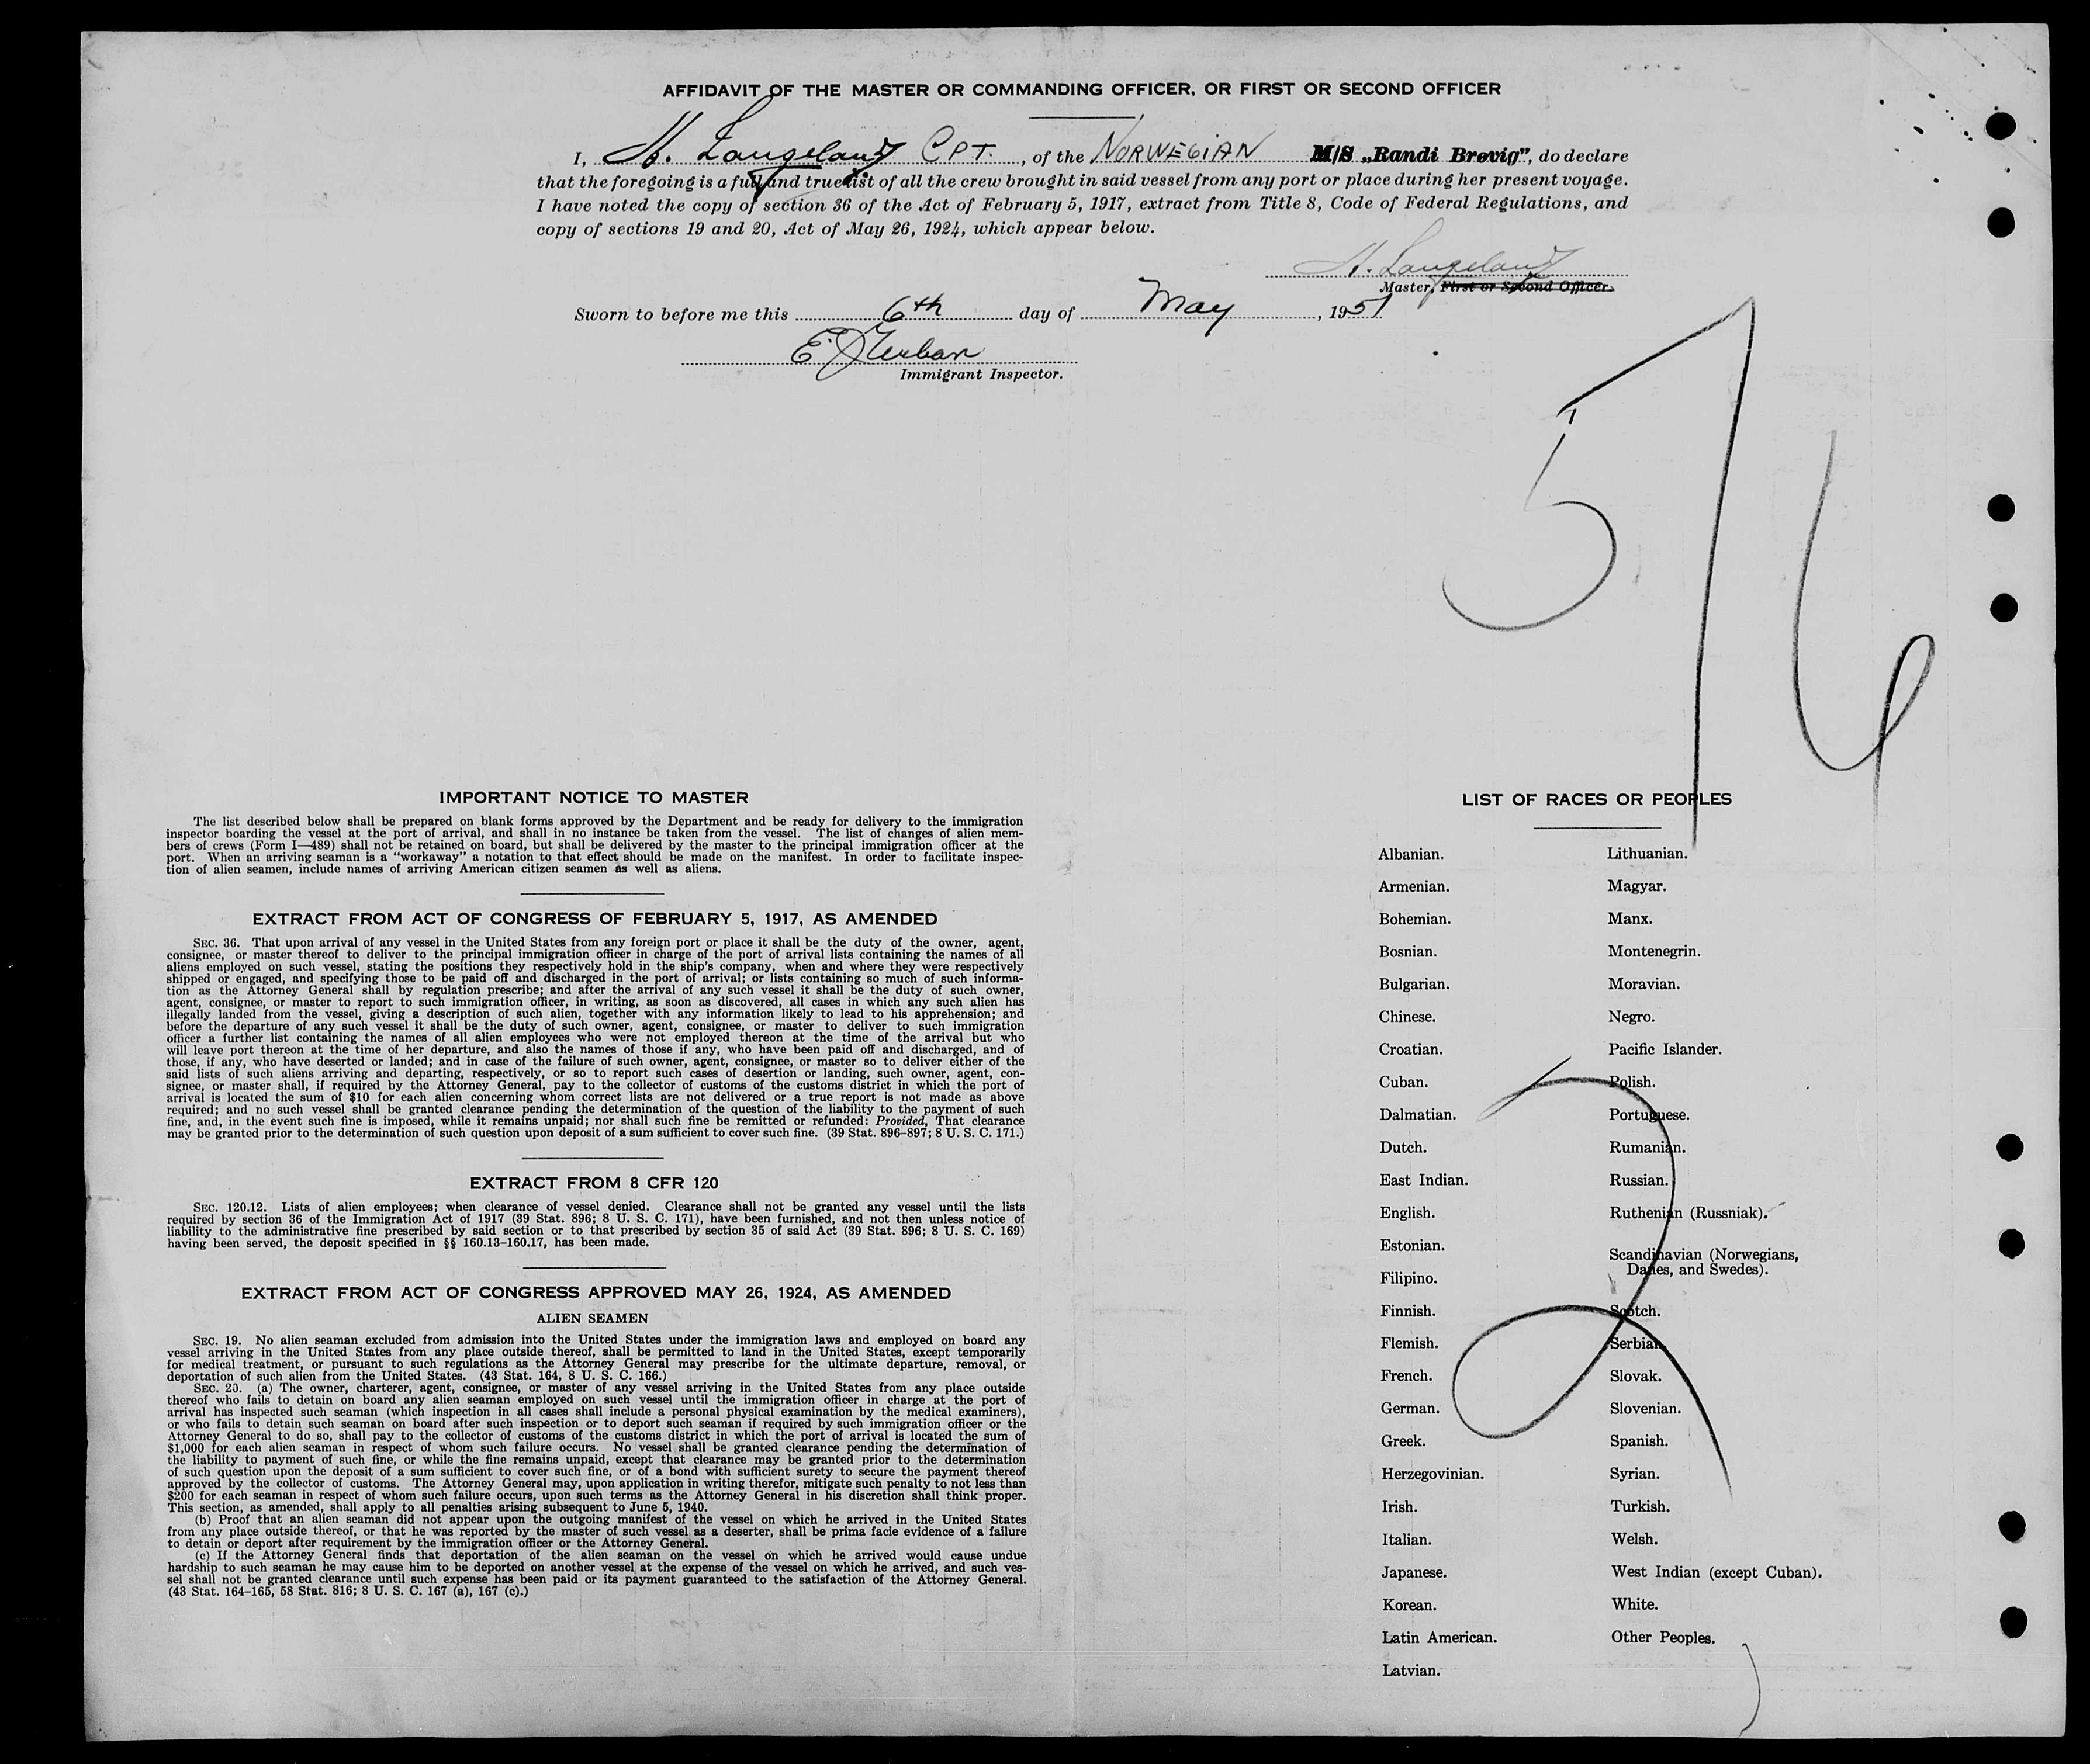 AFFIDAVIT OF THE MASTER OR COMMANDING OFFICER, OR FIRST OR SECOND OFFICER
I, H. Langeland CPT. , of the NORWEGIAN M/S „Randi Brøvig”, do declare
that the foregoing is a full and true list of all the crew brought in said vessel from any port or place during her present voyage.
I have noted the copy of section 36 of the Act of February 5, 1917, extract from Title 8, Code of Federal Regulations, and
copy of sections 19 and 20, Act of May 26, 1924, which appear below.
H. Langeland
Master, First or Second Officer.
Sworn to before me this 6th day of May , 1951
Immigrant Inspector.
5 7 6
IMPORTANT NOTICE TO MASTER
The list described below shall be prepared on blank forms approved by the Department and be ready for delivery to the immigration
inspector boarding the vessel at the port of arrival, and shall in no instance be taken from the vessel. The list of changes of alien mem-
bers of crews (Form I—489) shall not be retained on board, but shall be delivered by the master to the principal immigration officer at the
port. When an arriving seaman is a “workaway” a notation to that effect should be made on the manifest. In order to facilitate inspec-
tion of alien seamen, include names of arriving American citizen seamen as well as aliens.
EXTRACT FROM ACT OF CONGRESS OF FEBRUARY 5, 1917, AS AMENDED
SEC. 36. That upon arrival of any vessel in the United States from any foreign port or place it shall be the duty of the owner, agent,
consignee, or master thereof to deliver to the principal immigration officer in charge of the port of arrival lists containing the names of all
aliens employed on such vessel, stating the positions they respectively hold in the ship's company, when and where they were respectively
shipped or engaged, and specifying those to be paid off and discharged in the port of arrival; or lists containing so much of such informa-
tion as the Attorney General shall by regulation prescribe; and after the arrival of any such vessel it shall be the duty of such owner,
agent, consignee, or master to report to such immigration officer, in writing, as soon as discovered, all cases in which any such alien has
illegally landed from the vessel, giving a description of such alien, together with any information likely to lead to his apprehension; and
before the departure of any such vessel it shall be the duty of such owner, agent, consignee, or master to deliver to such immigration
officer a further list containing the names of all alien employees who were not employed thereon at the time of the arrival but who
will leave port thereon at the time of her departure, and also the names of those if any, who have been paid off and discharged, and of
those, if any, who have deserted or landed; and in case of the failure of such owner, agent, consignee, or master so to deliver either of the
said lists of such aliens arriving and departing, respectively, or so to report such cases of desertion or landing, such owner, agent, con-
signee, or master shall, if required by the Attorney General, pay to the collector of customs of the customs district in which the port of
arrival is located the sum of $10 for each alien concerning whom correct lists are not delivered or a true report is not made as above
required; and no such vessel shall be granted clearance pending the determination of the question of the liability to the payment of such
fine, and, in the event such fine is imposed, while it remains unpaid; nor shall such fine be remitted or refunded: Provided, That clearance
may be granted prior to the determination of such question upon deposit of a sum sufficient to cover such fine. (39 Stat. 896–897; 8 U. S. C. 171.)
EXTRACT FROM 8 CFR 120
SEC. 120.12. Lists of alien employees; when clearance of vessel denied. Clearance shall not be granted any vessel until the lists
required by section 36 of the Immigration Act of 1917 (39 Stat. 896; 8 U. S. C. 171), have been furnished, and not then unless notice of
liability to the administrative fine prescribed by said section or to that prescribed by section 35 of said Act (39 Stat. 896; 8 U. S. C. 169)
having been served, the deposit specified in §§ 160.13–160.17, has been made.
EXTRACT FROM ACT OF CONGRESS APPROVED MAY 26, 1924, AS AMENDED
ALIEN SEAMEN
SEC. 19. No alien seaman excluded from admission into the United States under the immigration laws and employed on board any
vessel arriving in the United States from any place outside thereof, shall be permitted to land in the United States, except temporarily
for medical treatment, or pursuant to such regulations as the Attorney General may prescribe for the ultimate departure, removal, or
deportation of such alien from the United States. (43 Stat. 164, 8 U. S. C. 166.)
SEC. 20. (a) The owner, charterer, agent, consignee, or master of any vessel arriving in the United States from any place outside
thereof who fails to detain on board any alien seaman employed on such vessel until the immigration officer in charge at the port of
arrival has inspected such seaman (which inspection in all cases shall include a personal physical examination by the medical examiners),
or who fails to detain such seaman on board after such inspection or to deport such seaman if required by such immigration officer or the
Attorney General to do so, shall pay to the collector of customs of the customs district in which the port of arrival is located the sum of
$1,000 for each alien seaman in respect of whom such failure occurs. No vessel shall be granted clearance pending the determination of
the liability to payment of such fine, or while the fine remains unpaid, except that clearance may be granted prior to the determination
of such question upon the deposit of a sum sufficient to cover such fine, or of a bond with sufficient surety to secure the payment thereof
approved by the collector of customs. The Attorney General may, upon application in writing therefor, mitigate such penalty to not less than
$200 for each seaman in respect of whom such failure occurs, upon such terms as the Attorney General in his discretion shall think proper.
This section, as amended, shall apply to all penalties arising subsequent to June 5, 1940.
(b) Proof that an alien seaman did not appear upon the outgoing manifest of the vessel on which he arrived in the United States
from any place outside thereof, or that he was reported by the master of such vessel as a deserter, shall be prima facie evidence of a failure
to detain or deport after requirement by the immigration officer or the Attorney General.
(c) If the Attorney General finds that deportation of the alien seaman on the vessel on which he arrived would cause undue
hardship to such seaman he may cause him to be deported on another vessel at the expense of the vessel on which he arrived, and such ves-
sel shall not be granted clearance until such expense has been paid or its payment guaranteed to the satisfaction of the Attorney General.
(43 Stat. 164–165, 58 Stat. 816; 8 U. S. C. 167 (a), 167 (c).)
LIST OF RACES OR PEOPLES
Albanian.
Armenian.
Bohemian.
Bosnian.
Bulgarian.
Chinese.
Croatian.
Cuban.
Dalmatian.
Dutch.
East Indian.
English.
Estonian.
Filipino.
Finnish.
Flemish.
French.
German.
Greek.
Herzegovinian.
Irish.
Italian.
Japanese.
Korean.
Latin American.
Latvian.
Lithuanian.
Magyar.
Manx.
Montenegrin.
Moravian.
Negro.
Pacific Islander.
Polish.
Portuguese.
Rumanian.
Russian.
Ruthenian (Russniak).
Scandinavian (Norwegians,
Danes, and Swedes).
Scotch.
Serbian.
Slovak.
Slovenian.
Spanish.
Syrian.
Turkish.
Welsh.
West Indian (except Cuban).
White.
Other Peoples.
2